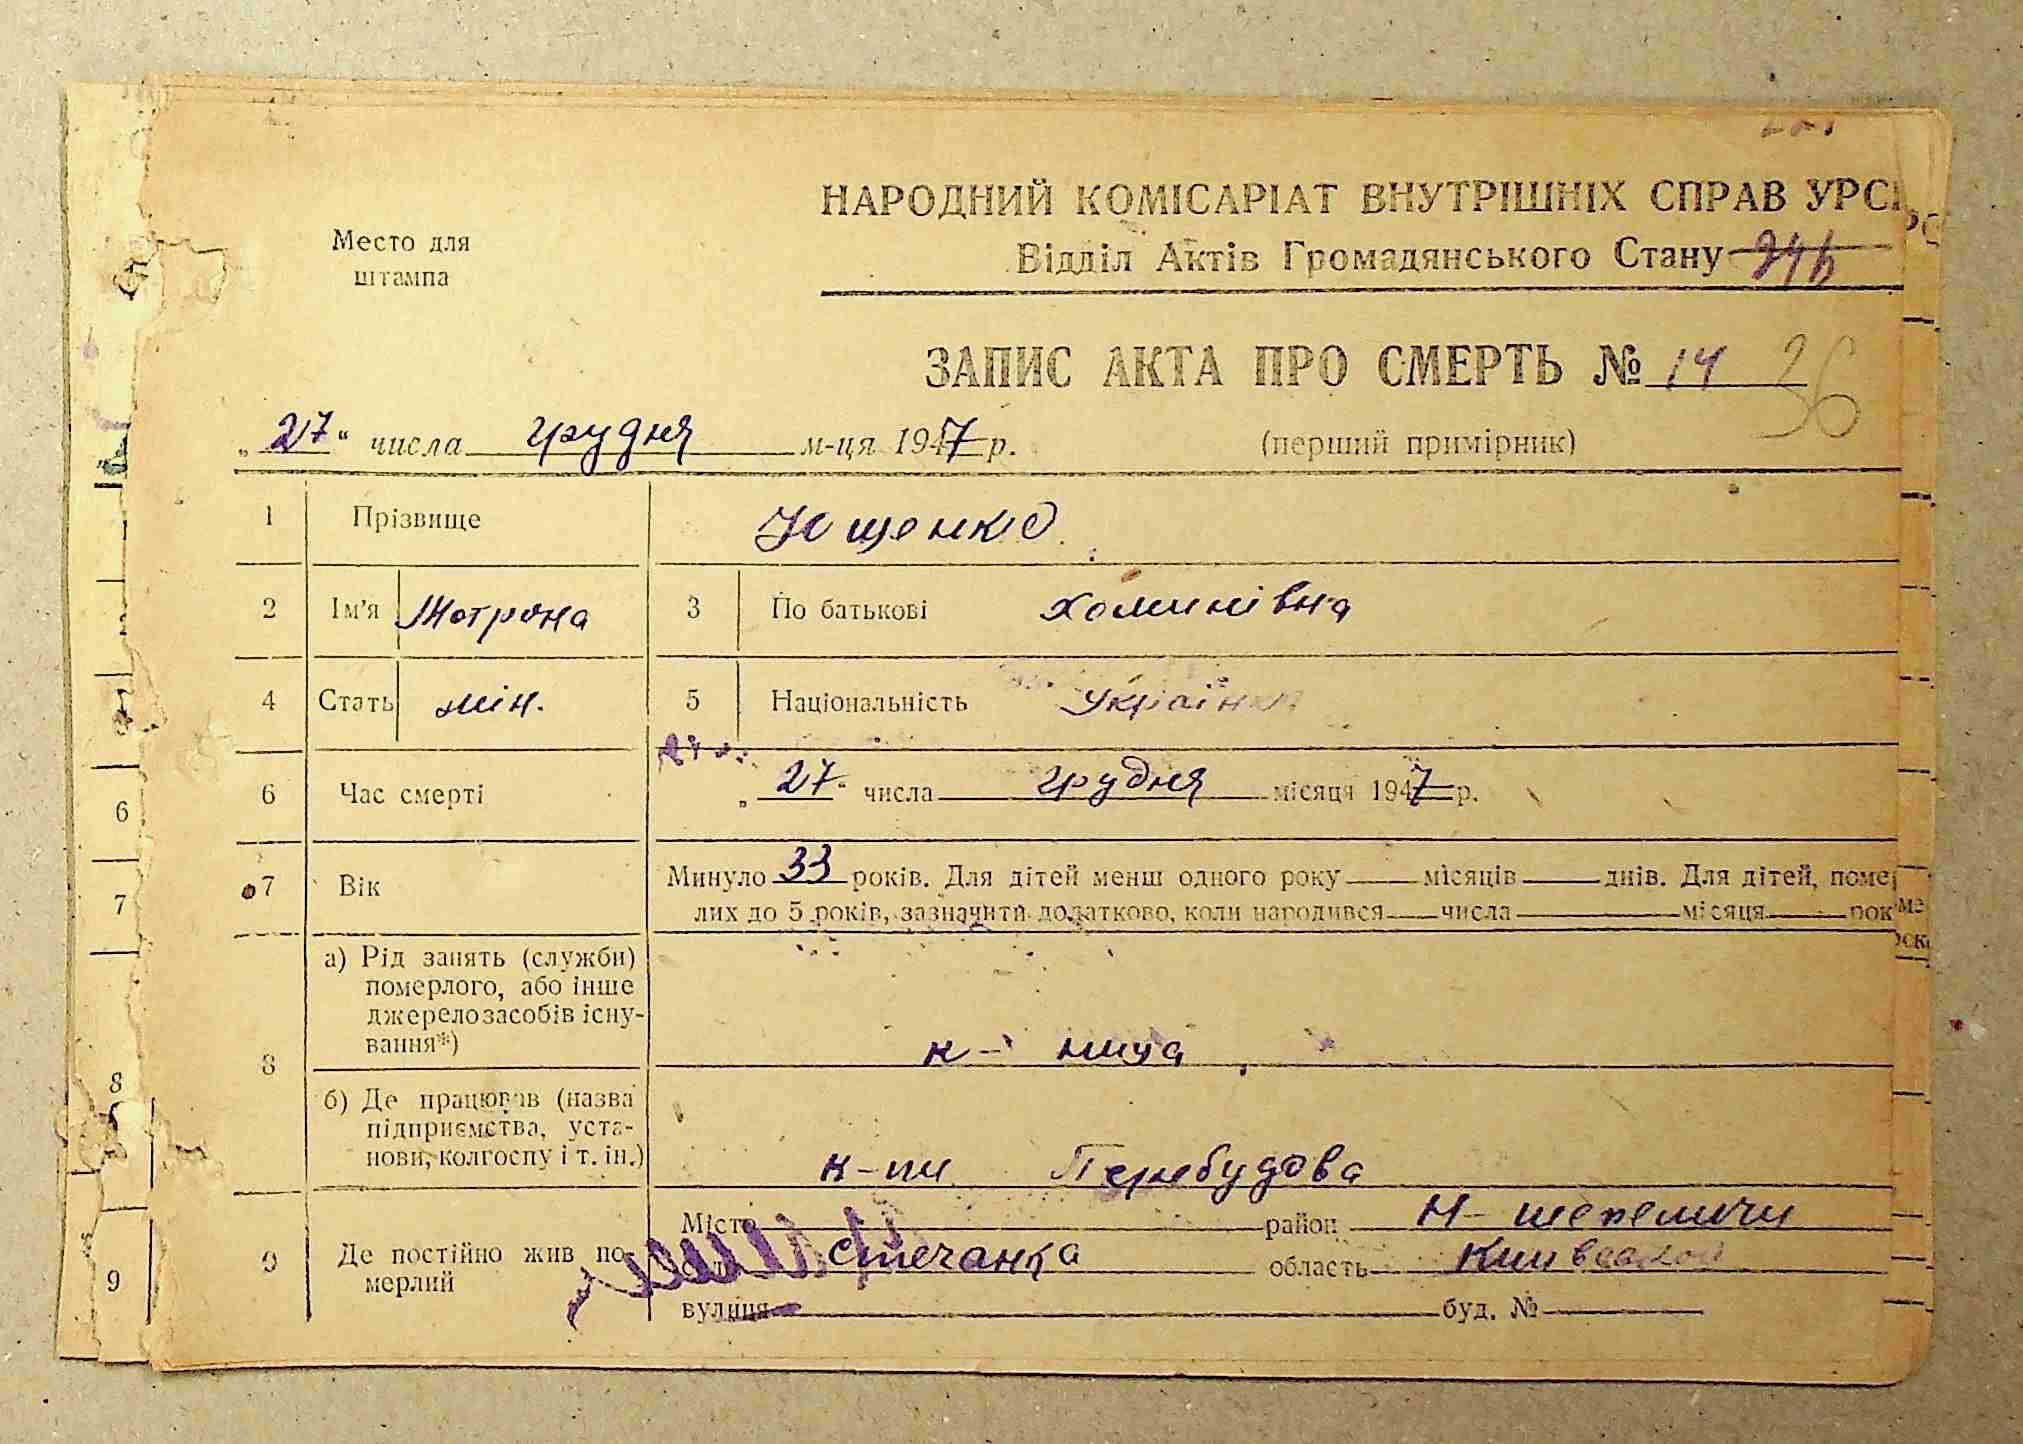 НАРОДНИЙ КОМІСАРІАТ ВНУТРІШНІХ СПРАВ УРСР
Відділ Актів Громадянського Стану
Место для
штампа
ЗАПИС АКТА ПРО СМЕРТЬ № 14 36
„27“ числа грудня м-ця 1947 р. (перший примірник)
1 Прізвище Ющенко
2 Ім'я Мотрона 3 По батькові Хоминівна
4 Стать жін. 5 Національність Українка
6 Час смерті „27“ числа грудня місяця 1947 р.
7 Вік Минуло 33 років. Для дітей менш одного року місяців днів. Для дітей, помер
лих до 5 років, зазначити додатково, коли народився числа місяця рок
8 а) Рід занять (служби)
померлого, або інше
джерело засобів існу-
вання*)
к- ниця
б) Де працював (назва
підприємства, уста-
нови, колгоспу і т. ін.)
к-пи Перебудова
9 Де постійно жив по
мерлий
Місто район Н-шепеличи
Стечанка область Київської
вулиця буд. №
6
7
8
9